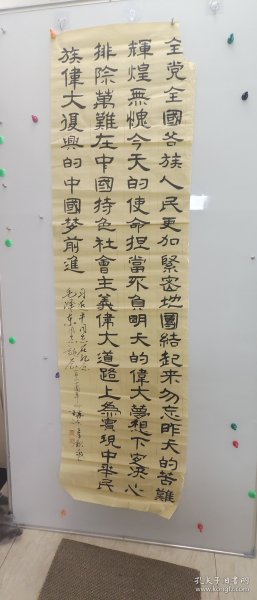 全党全國各族人民更加緊密地團結起来勿忘昨天的苦難
輝煌無愧今天的使命担當不負明天的偉大夢想下定决心
排除萬難在中國特色社會主義偉大道路上為實現中華民
族偉大復興的中國梦前進
孔夫子旧书网